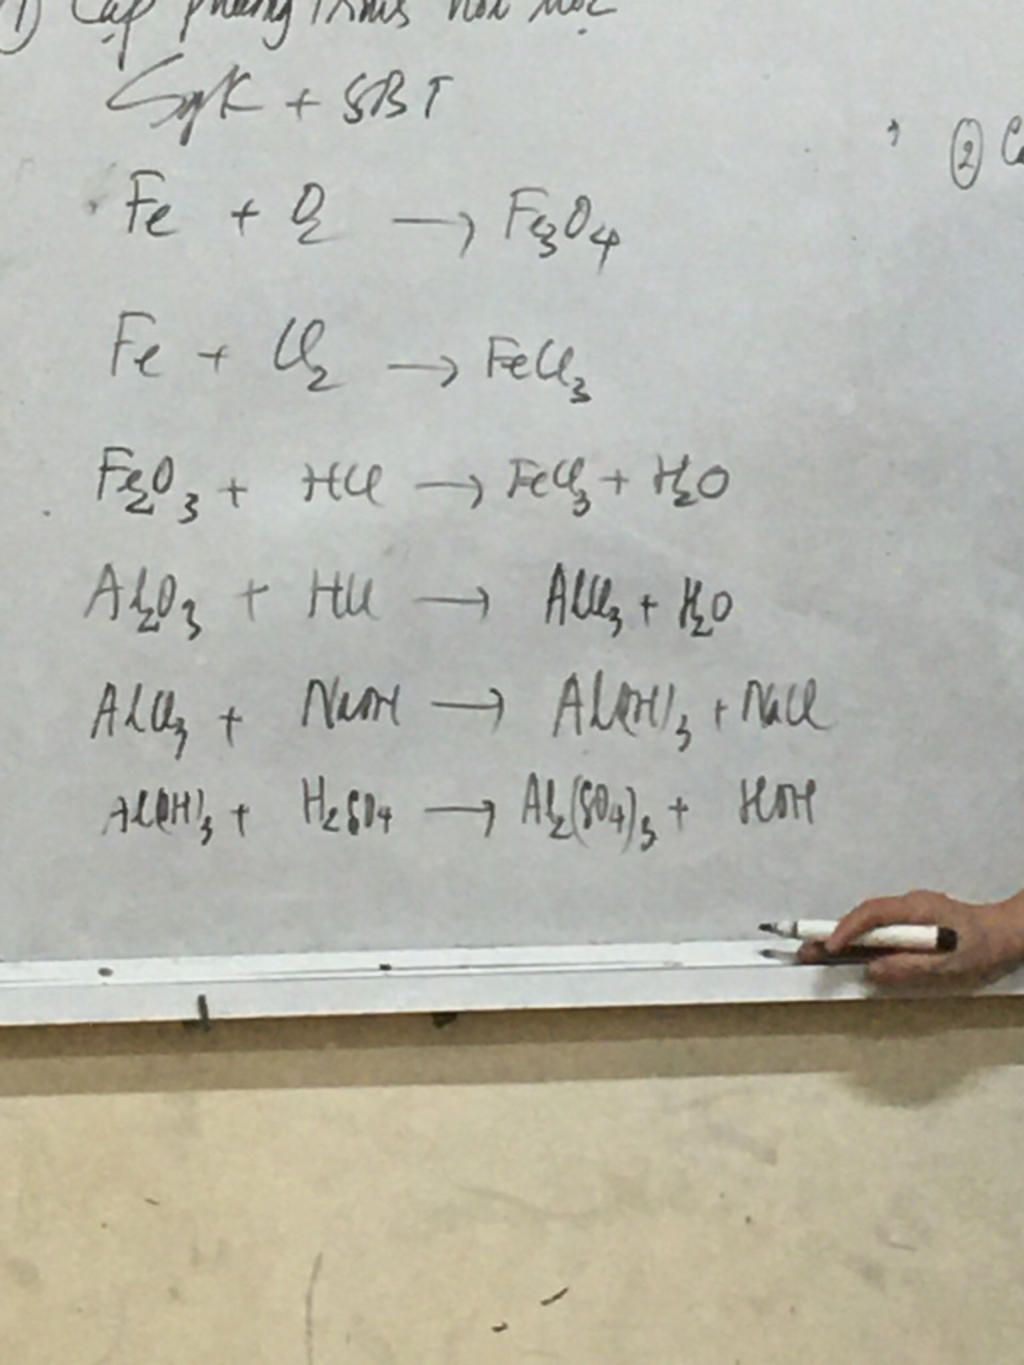 1) Lập phương trình hoá học
Sgk + SBT
② C
Fe + O₂ → Fe₃O₄
Fe + Cl₂ → FeCl₃
Fe₂O₃ + HCl → FeCl₃ + H₂O
Al₂O₃ + HCl → AlCl₃ + H₂O
AlCl₃ + NaOH → Al(OH)₃ + NaCl
Al(OH)₃ + H₂SO₄ → Al₂(SO₄)₃ + HOH